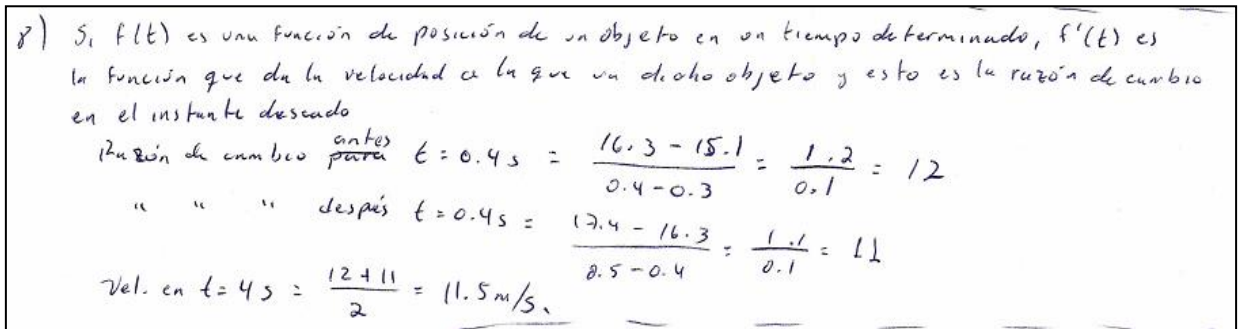 8) Si f(t) es una función de posición de un objeto en un tiempo determinado, f'(t) es
la función que da la velocidad a la que va dicho objeto y esto es la razón de cambio
en el instante deseado
Razón de cambio antes para t = 0.4 s = (16.3 - 15.1)/(0.4 - 0.3) = 1.2/0.1 = 12
" " " después t = 0.4 s = (17.4 - 16.3)/(0.5 - 0.4) = 1.1/0.1 = 11
Vel. en t = 4 s = (12 + 11)/2 = 11.5 m/s.